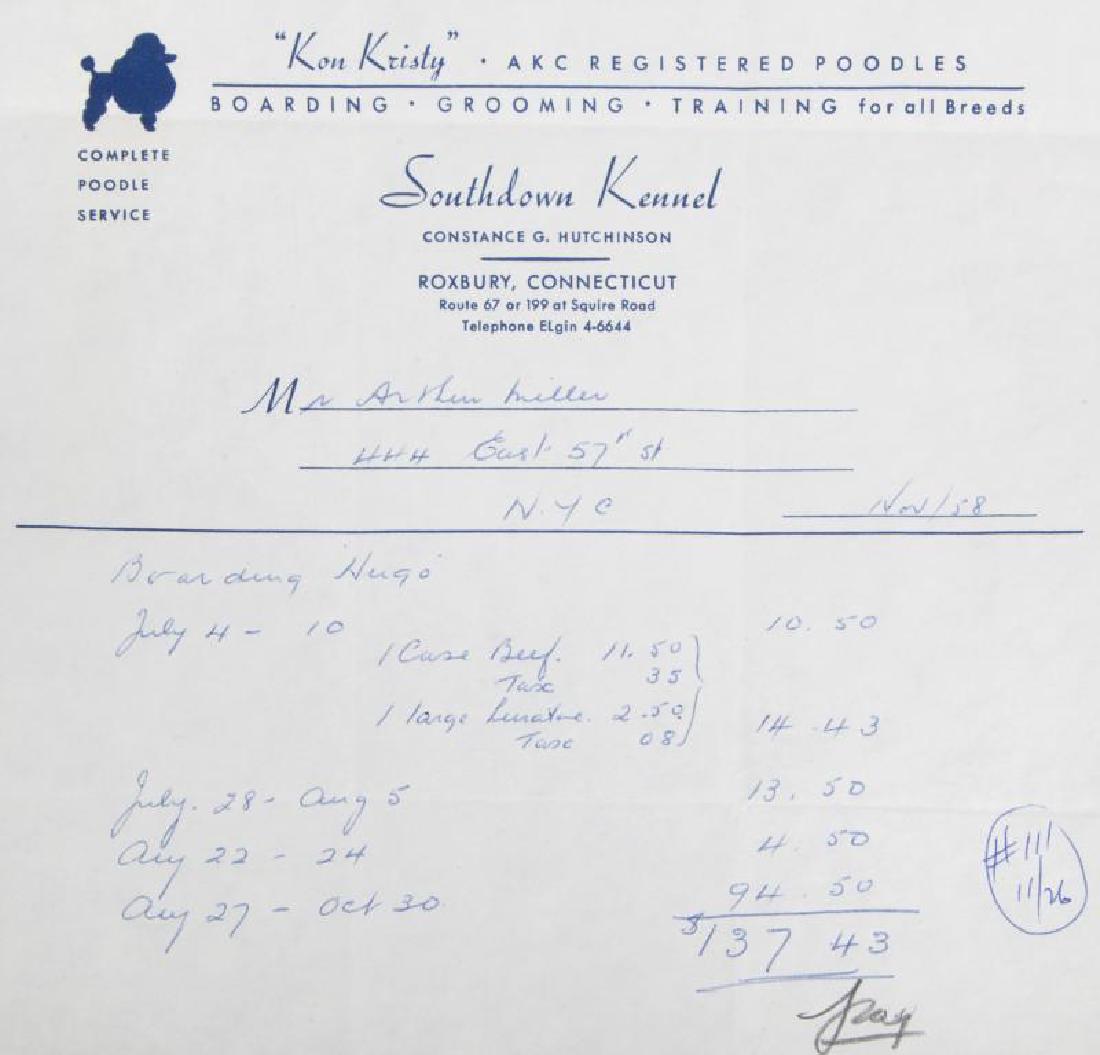 "Kon Kristy" · AKC REGISTERED POODLES
BOARDING · GROOMING · TRAINING for all Breeds
COMPLETE
POODLE
SERVICE
Southdown Kennel
CONSTANCE G. HUTCHINSON
ROXBURY, CONNECTICUT
Route 67 or 199 at Squire Road
Telephone ELgin 4-6644
Mr Arthur Miller
444 East 57" St
N.Y C Nov/58
Boarding Hugo
July 4 - 10 10.50
1 Case Beef. 11.50
Tax 35
1 large 2.50
Tax 08 14.43
July. 28 - Aug 5 13.50
Aug 22 - 24 4.50
Aug 27 - Oct 30 94.50
$137 43
#111
11/26